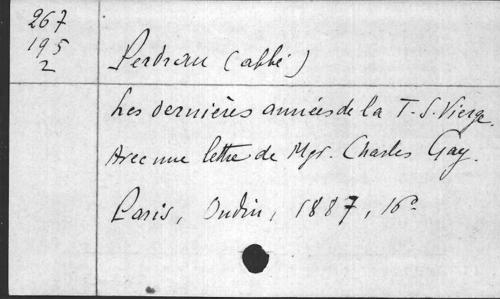 267
195
2
Perdrau (abbé)
Les dernières années de la T. S. Vierge.
Avec une lettre de Mgr. Charles Gay.
Paris, Oudin, 1887, 16º